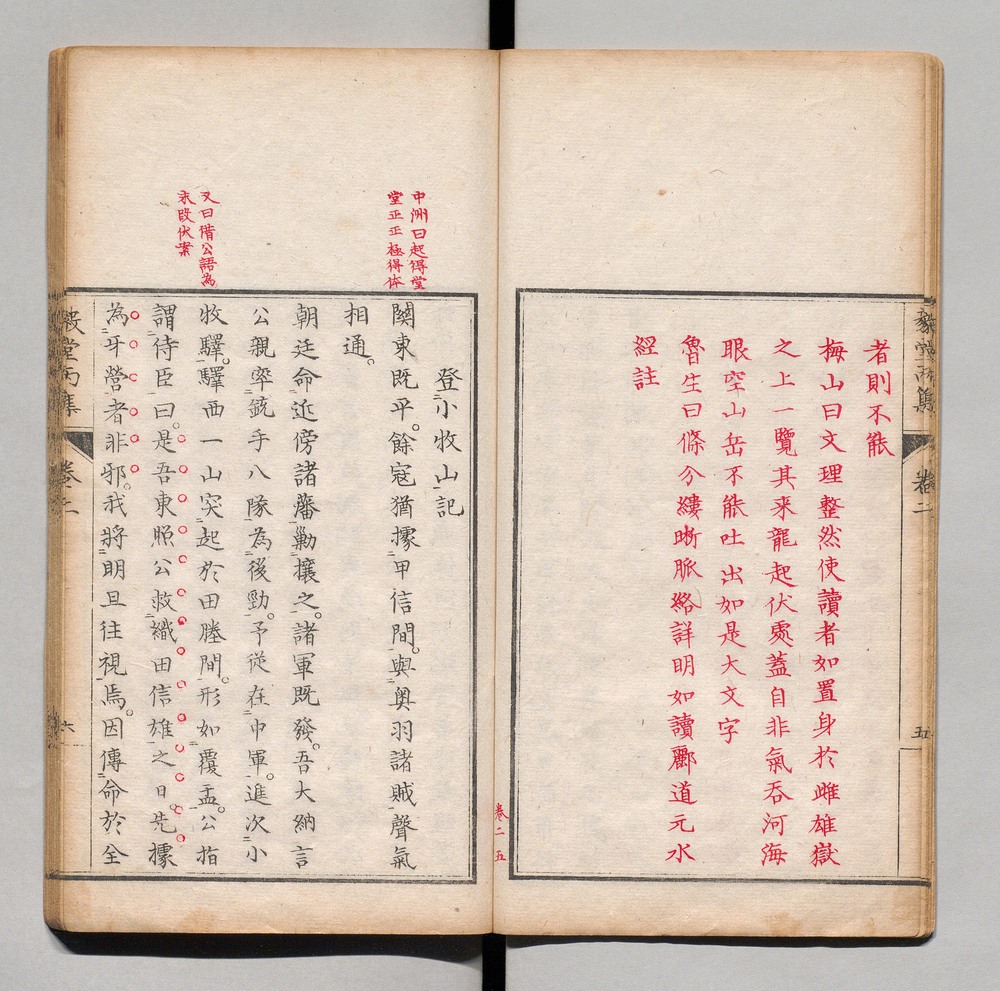 者則不能
梅山曰文理整然使讀者如置身於雌雄嶽
之上一覽其来龍起伏處蓋自非氣吞河海
眼空山岳不能吐出如是大文字
魯生曰條分縷晰脈絡詳明如讀酈道元水
經註
毅堂丙集
卷二
五
卷二 五
中洲曰起得堂
堂正正極得体
又曰借公語為
末段伏案
登小牧山記
關東既平。餘寇猶據甲信間。與奥羽諸賊聲氣
相通。
朝廷命近傍諸藩勦攘之。諸軍既發。吾大納言
公親率銃手八隊為後勁。予従在中軍。進次小
牧驛。驛西一山突起於田塍間。形如覆盂。公指
謂侍臣曰。是吾東照公救織田信雄之日。先據
為牙營者非邪。我將明旦往視焉。因傳命於全
毅堂丙集
卷二
六